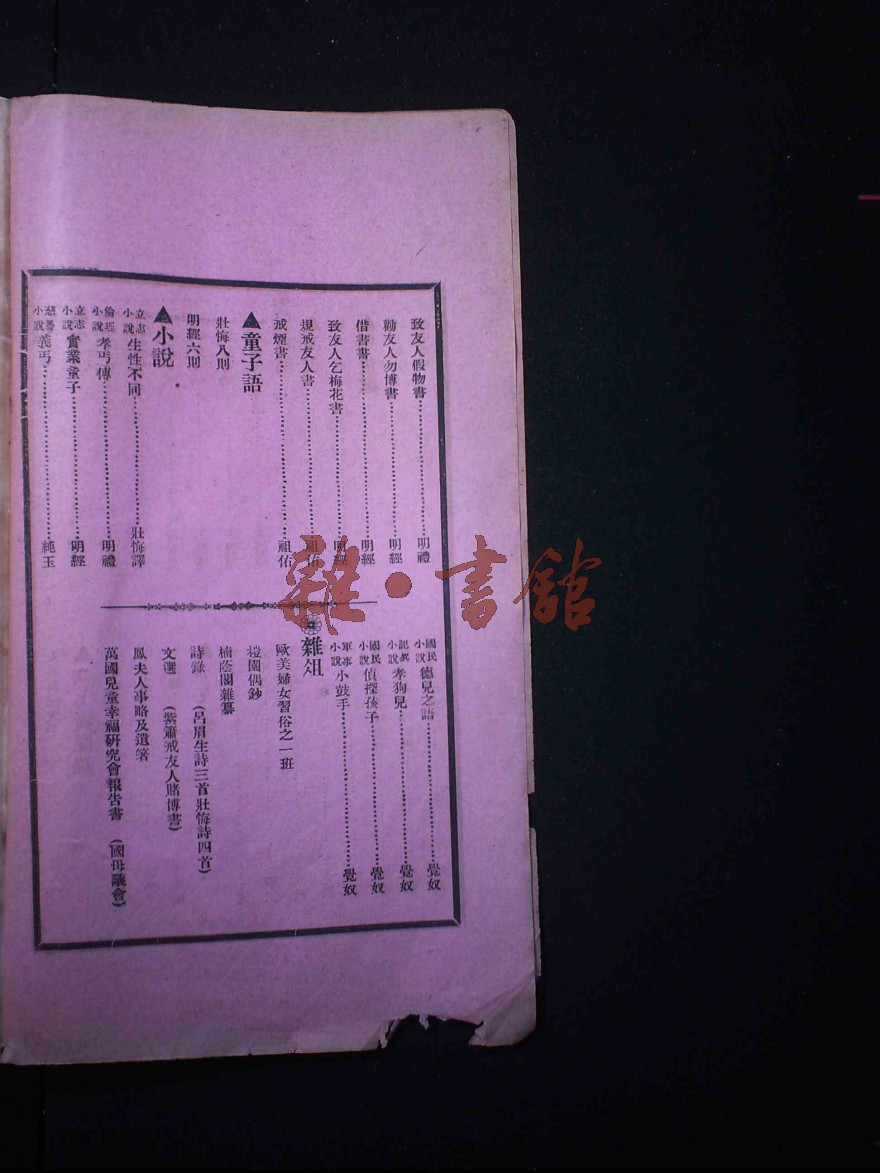 致友人假物書……明禮
勸友人勿博書……明經
借書書……明經
致友人乞梅花書……明經
規戒友人書……祖佑
戒煙書……祖佑
▲童子語
壯悔八則
明經六則
▲小說
立志小說 生性不同……壯悔譯
倫理小說 孝丐傳……明禮
立志小說 實業童子……明經
慈善小說 義丐……純玉
國民小說 德兒之語……覺奴
記眞小說 孝狗兒……覺奴
國民小說 偵探孩子……覺奴
軍事小說 小鼓手……覺奴
雜俎
歐美婦女習俗之一班
園偶鈔
楠蔭閣雜纂
詩錄 (呂眉生詩三首壯悔詩四首)
文選 (紫簫戒友人賭博書)
鳳夫人事略及遺箸
萬國兒童幸福研究會報告書 (國母議會)
雜·書館